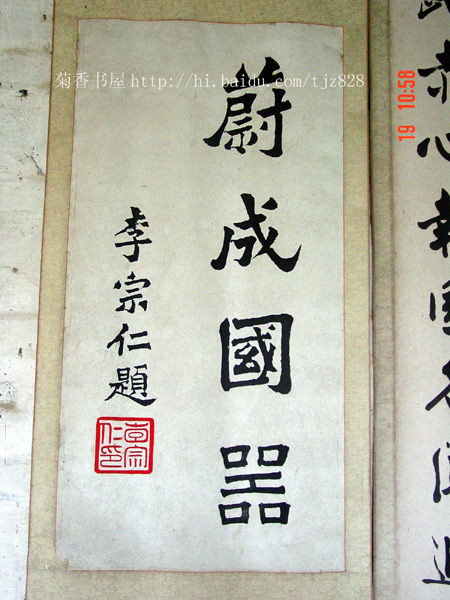 菊香书屋 http://hi.baidu.com/tjz828
19 10:58
赤心報国名
蔚成國器
李宗仁題
李宗仁印